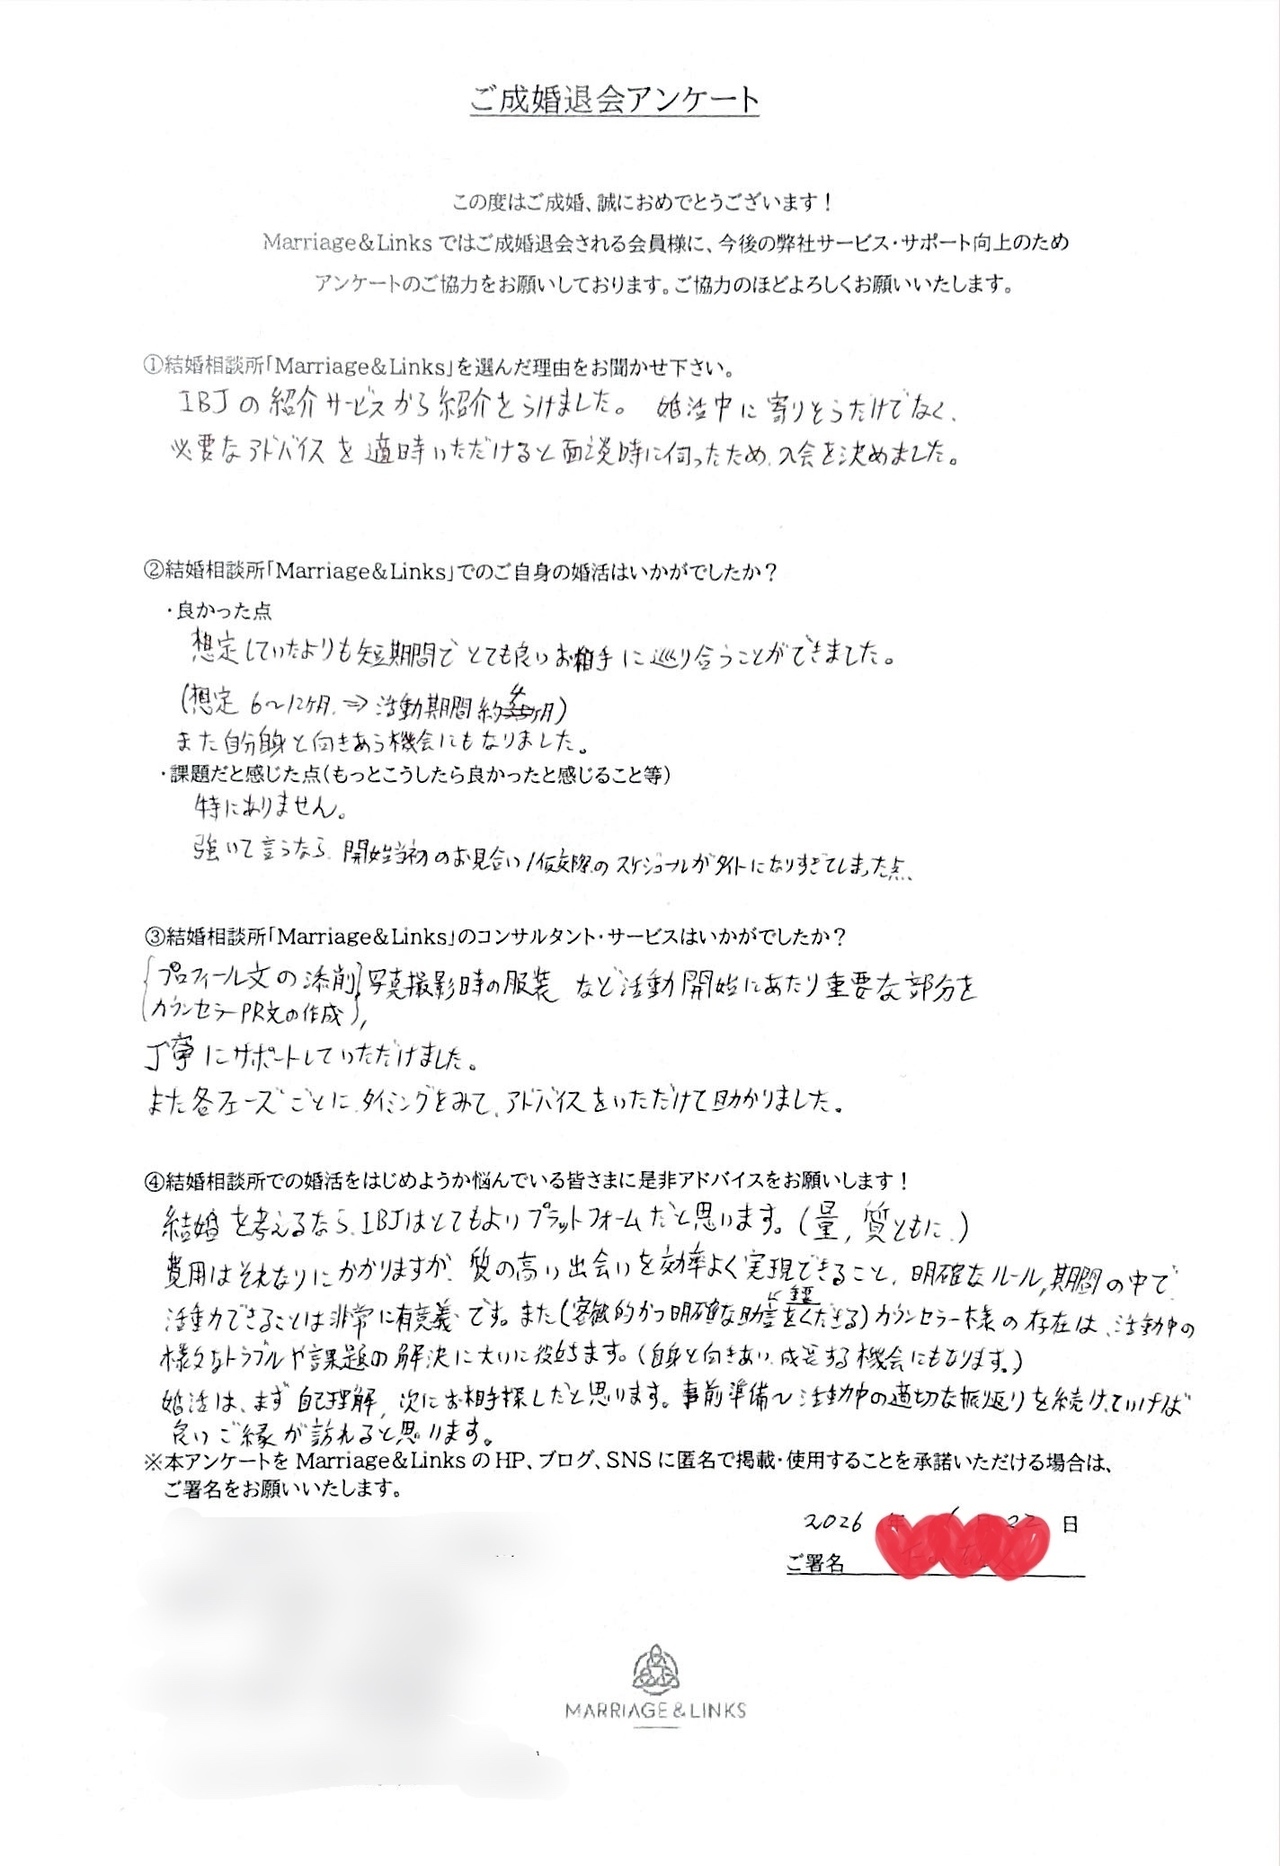 ご成婚退会アンケート
この度はご成婚、誠におめでとうございます！
Marriage&Links ではご成婚退会される会員様に、今後の弊社サービス・サポート向上のため
アンケートのご協力をお願いしております。ご協力のほどよろしくお願いいたします。
①結婚相談所「Marriage&Links」を選んだ理由をお聞かせ下さい。
IBJの紹介サービスから紹介をうけました。 婚活中に寄りそうだけでなく、
必要なアドバイスを適時いただけると面談時に伺ったため、入会を決めました。
②結婚相談所「Marriage&Links」でのご自身の婚活はいかがでしたか？
・良かった点
想定していたよりも短期間でとても良いお相手に巡り合うことができました。
(想定 6〜12ヶ月 ⇒ 活動期間約4ヶ月)
また自分自身と向きあう機会にもなりました。
・課題だと感じた点（もっとこうしたら良かったと感じること等）
特にありません。
強いて言うなら、開始当初のお見合い/仮交際のスケジュールがタイトになりすぎてしまった点、
③結婚相談所「Marriage&Links」のコンサルタント・サービスはいかがでしたか？
プロフィール文の添削 写真撮影時の服装 など活動開始にあたり重要な部分を
カウンセラーPR文の作成
丁寧にサポートしていただけました。
また各フェーズごとに、タイミングをみて、アドバイスをいただけて助かりました。
④結婚相談所での婚活をはじめようか悩んでいる皆さまに是非アドバイスをお願いします！
結婚を考えるなら、IBJはとてもよいプラットフォームだと思います。(量, 質ともに)
費用はそれなりにかかりますが、質の高い出会いを効率よく実現できること、明確なルール,期間の中で
活動できることは非常に有意義です。また(客観的かつ明確な助言をくださる)カウンセラー様の存在は、活動中の
様々なトラブルや課題の解決に大いに役立ちます。(自身と向きあい、成長する機会にもなります。)
婚活は、まず自己理解, 次にお相手探しだと思います。事前準備〜活動中の適切な振返りを続けていけば
良いご縁が訪れると思います。
※本アンケートを Marriage&Links の HP、ブログ、SNS に匿名で掲載・使用することを承諾いただける場合は、
ご署名をお願いいたします。
2026 年 22 日
ご署名
MARRIAGE&LINKS